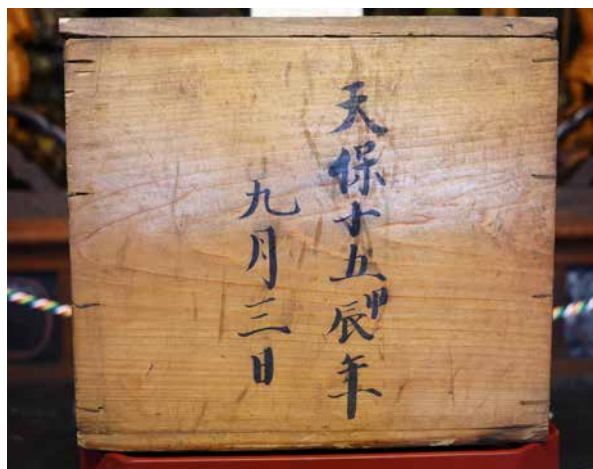 天保十五甲辰年
九月三日